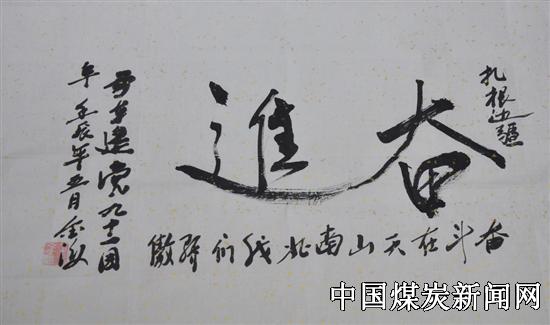 扎根边疆
奋進
奋斗在天山南北我们骄傲
建党九十一周
年 壬辰年五月 金海
中国煤炭新闻网